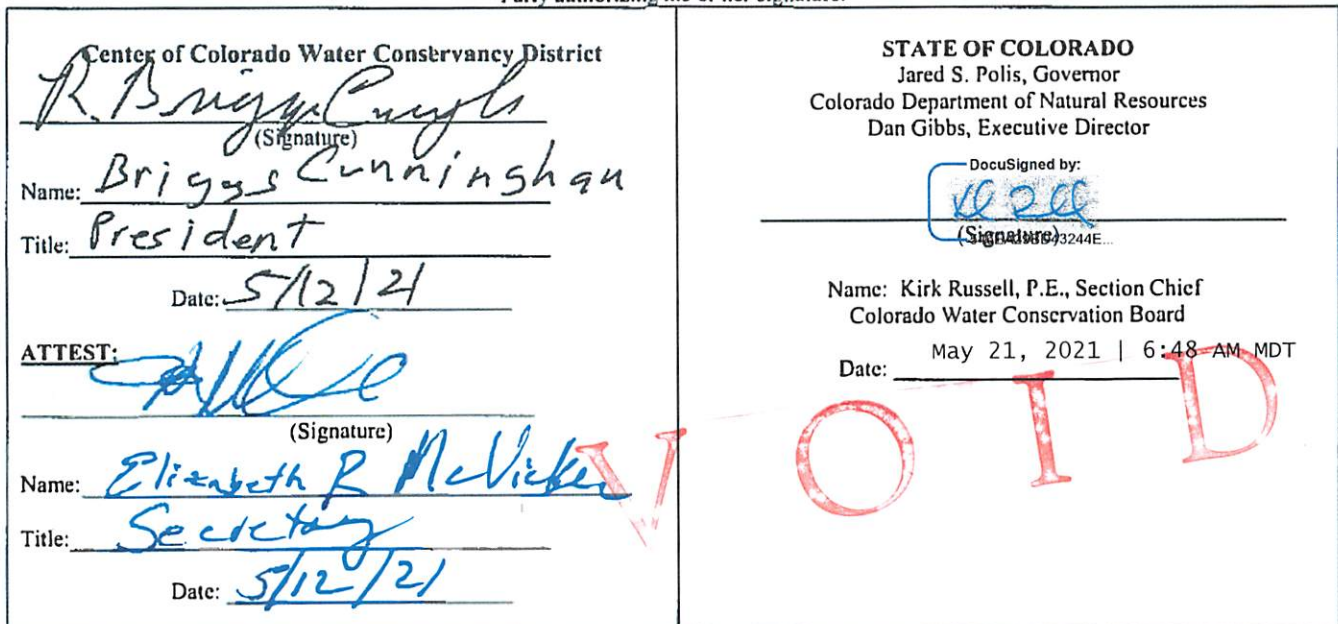 Party authorizing his or her signature.
Center of Colorado Water Conservancy District
R. Briggs Cunningham
(Signature)
Name: Briggs Cunningham
Title: President
Date: 5/12/21
ATTEST:
(Signature)
Name: Elizabeth R McVicker
Title: Secretary
Date: 5/12/21
STATE OF COLORADO
Jared S. Polis, Governor
Colorado Department of Natural Resources
Dan Gibbs, Executive Director
DocuSigned by:
(Signature)
Name: Kirk Russell, P.E., Section Chief
Colorado Water Conservation Board
Date: May 21, 2021 | 6:48 AM MDT
VOID